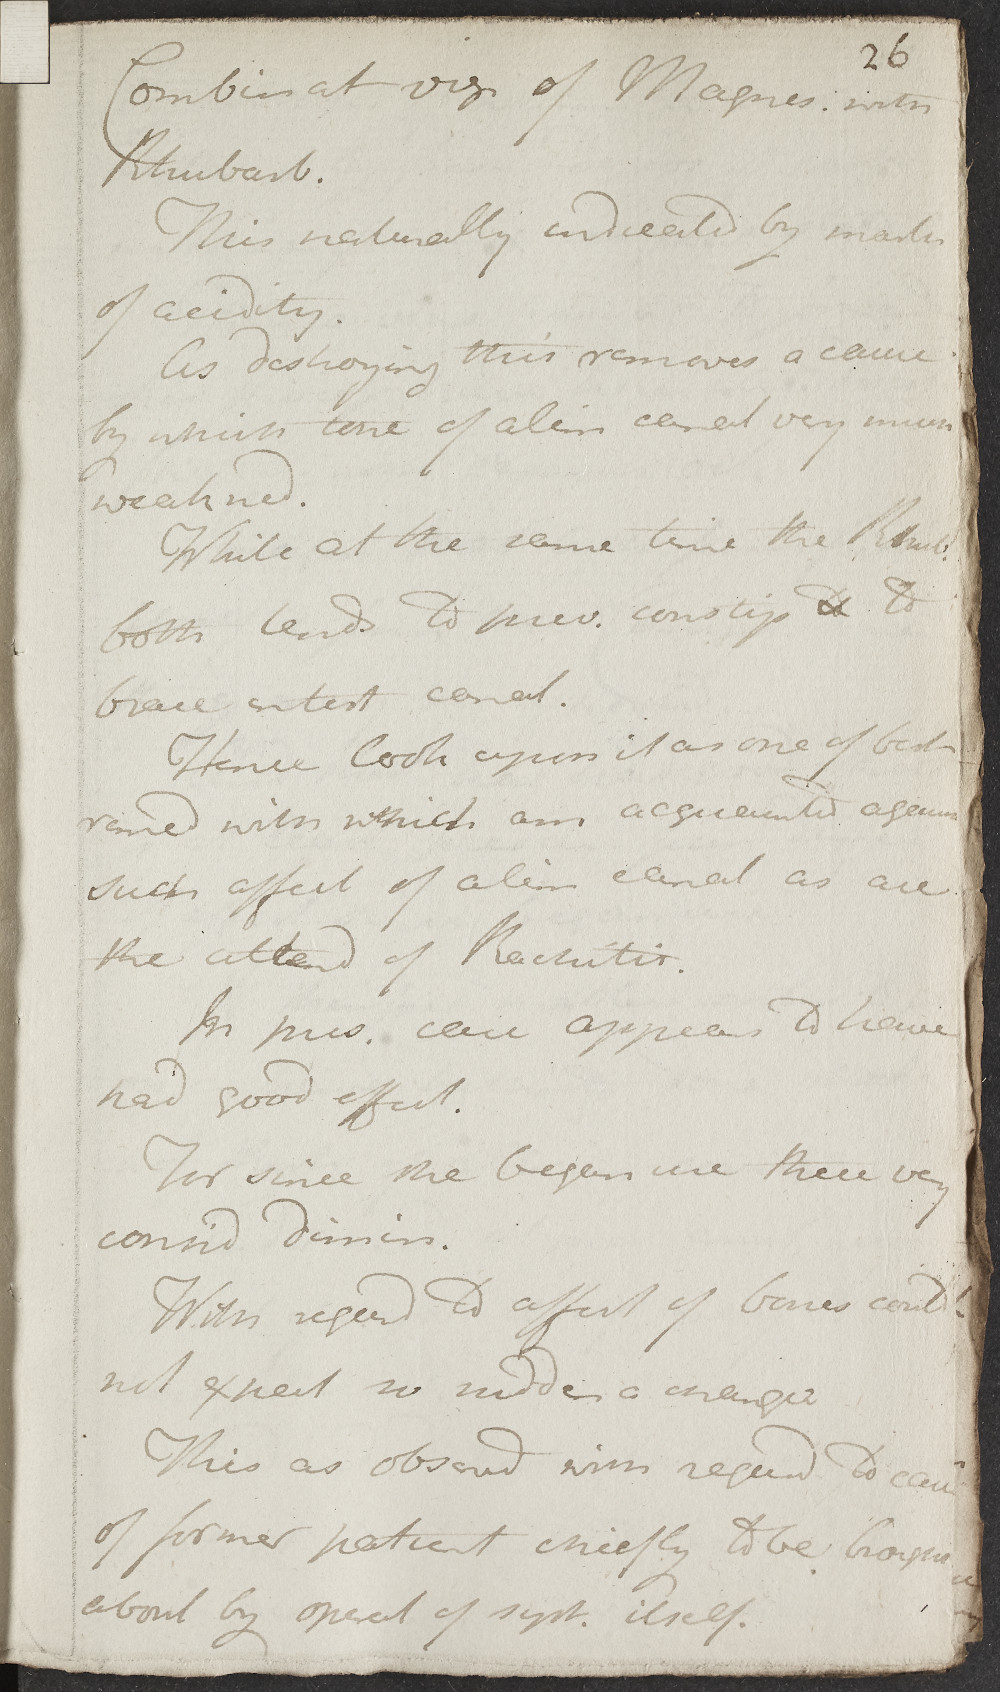 26
Combinat viz of Magnes. with
Rhubarb.
This naturally indicated by marks
of acidity.
As destroying this removes a cause
by which tone of alim canal very much
weakned.
While at the same time the Rhub.
both tends to prev. constip & to
brace intest canal.
Hence look upon it as one of best
remed with which am acquainted against
such affect of alim canal as are
the attend of Rachitis.
In pres. case appears to have
had good effect.
For since the began use these very
consid dimin.
With regard to affect of bones could
not expect so sudden a change
This as observd with regard to case
of former patient chiefly to be brought
about by operat of syst. itself.